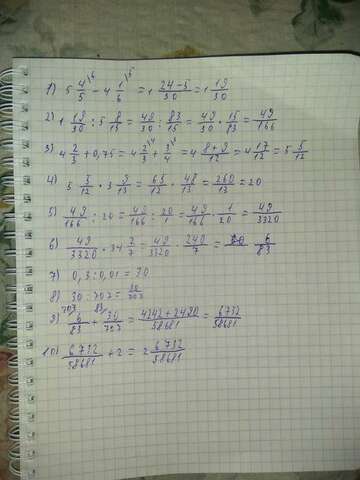 1) 5 4/5 \6 - 4 1/6 \5 = 1 24-5/30 = 1 19/30
2) 1 19/30 : 5 8/15 = 49/30 : 83/15 = 49/30 · 15/83 = 49/166
3) 4 2/3 + 0,75 = 4 2/3 \4 + 3/4 \3 = 4 8+9/12 = 4 17/12 = 5 5/12
4) 5 5/12 · 3 9/13 = 65/12 · 48/13 = 260/13 = 20
5) 49/166 : 20 = 49/166 : 20/1 = 49/166 · 1/20 = 49/3320
6) 49/3320 · 34 2/7 = 49/3320 · 240/7 = 6/83
7) 0,3 : 0,01 = 30
8) 30 : 707 = 30/707
9) 707/ 6/83 + 83/ 30/707 = 4242+2490/58681 = 6732/58681
10) 6732/58681 + 2 = 2 6732/58681